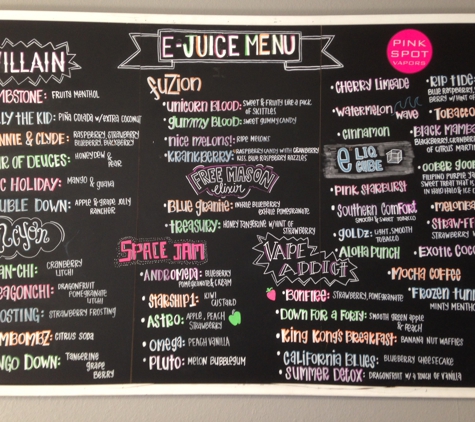 E-JUICE MENU
PINK
SPOT
VAPORS
VILLAIN
MBSTONE: FRUITY MENTHOL
LY THE KID: PIÑA COLADA W/EXTRA COCONUT
NNIE & CLYDE: RASPBERRY, STRAWBERRY
BLUEBERRY, BLACKBERRY
IR OF DEUCES: HONEYDEW &
PEAR
C HOLIDAY: MANGO & GUAVA
UBLE DOWN: APPLE & GRAPE JOLLY
RANCHER
AN-CHI: CRANBERRY
LITCHI
EAGONCHI: DRAGONFRUIT
POMEGRANATE
LITCHI
OSTING: STRAWBERRY FROSTING
MBOMBEZ: CITRUS SODA
NGO DOWN: TANGERINE
GRAPE
BERRY
FUZION
• UNICORN BLOOD: SWEET & FRUITY LIKE A PACK
OF SKITTLES
• GUMMY BLOOD: SWEET GUMMY CANDY
• NICE MELONS!: RIPE MELONS
• KRANKBERRY: RASPBERRY CANDY WITH CRANBERRY
KISS. BLUE RASPBERRY RAZZLES
FREE MASON
ELIXIR
• BLUE GRANITE: WHOLE BLUEBERRY
EXHALE POMEGRANATE
• TREASURY: HONEY TANGERINE W/HINT OF
STRAWBERRY
SPACE JAM
• ANDROMEDA: BLUEBERRY
POMEGRANATE & CREAM
• STARSHIP 1: KIWI
CUSTARD
• ASTRO: APPLE, PEACH
STRAWBERRY
• OMEGA: PEACH VANILLA
• PLUTO: MELON BUBBLEGUM
• CHERRY LIMEADE
• WATERMELON WAVE
• CINNAMON
E LIQ
CUBE
• PINK STARBURST
• SOUTHERN COMFORT
SMOOTH & SWEET TOBACCO
• GOLDZ: LIGHT, SMOOTH
TOBACCO
• ALOHA PUNCH
• RIP TIDE:
BLUE RASPBERRY
BERRY W/HINT OF
• TOBACCO
• BLACK MAMBA
BLACKBERRY, CRANBERRY
OF CITRUS
• GOBER GOO
FILIPINO PURPLE
SWEET TREAT THAT IS
IN HARD ICE &
• MELONBA
• STRAW-T
STRAWBERRY
• EXOTIC COCO
• MOCHA COFFEE
• FROZEN TUN
MINTY MENTHO
VAPE
ADDICT
• BONFIRE: STRAWBERRY, POMEGRANATE
• DOWN FOR A FORTY: SMOOTH GREEN APPLE
& PEACH
• KING KONG'S BREAKFAST: BANANA NUT WAFFLES
• CALIFORNIA BLUES: BLUEBERRY CHEESECAKE
• SUMMER DETOX: DRAGONFRUIT W/ A TOUCH OF VANILLA